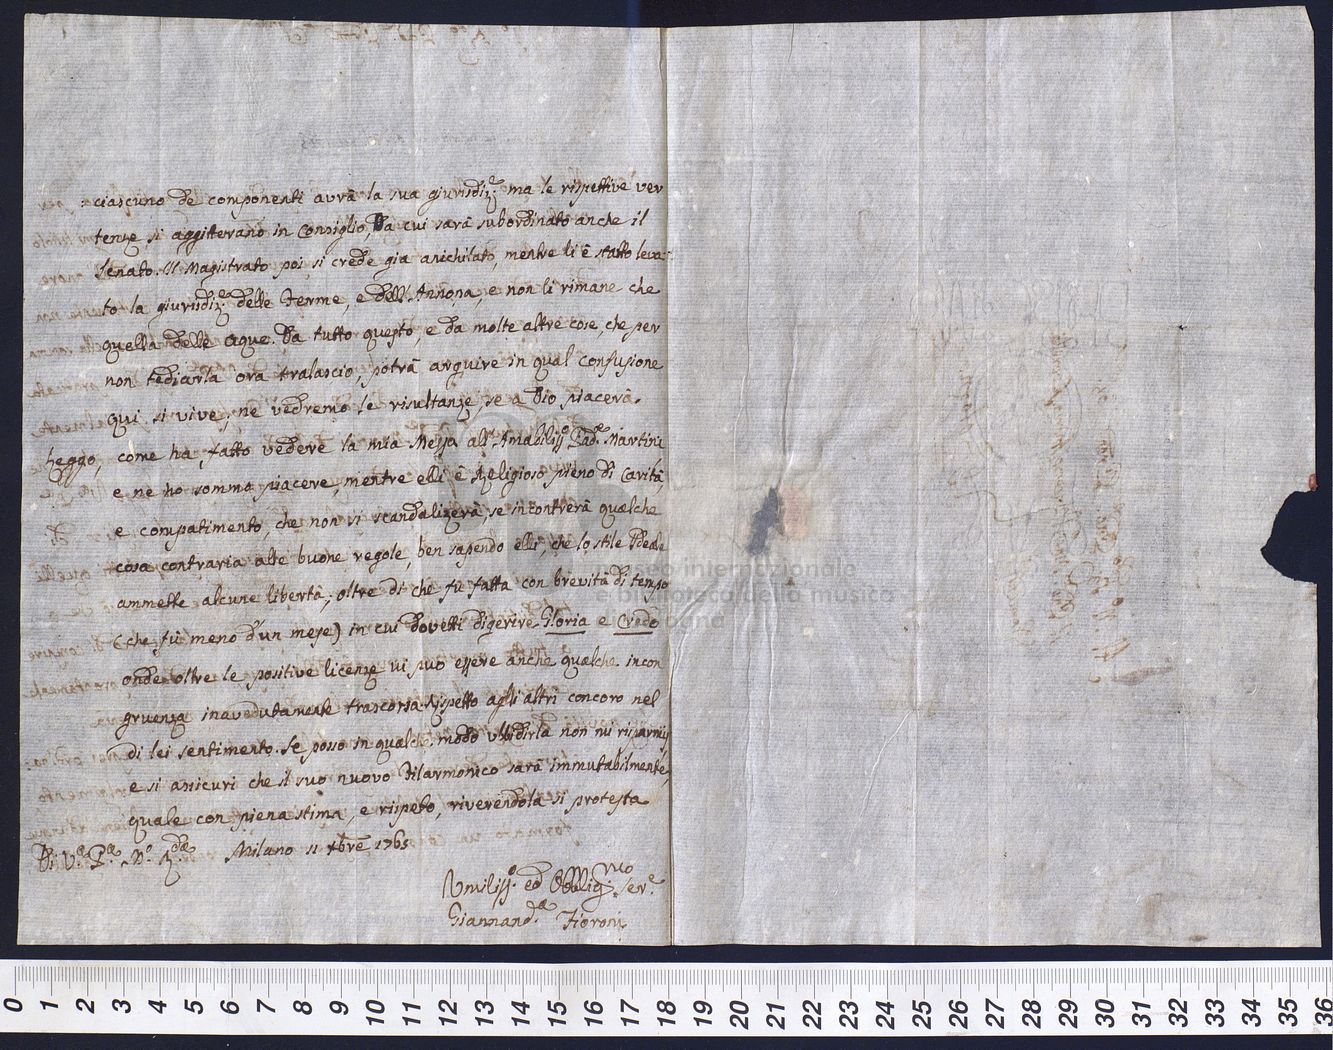 ciascuno de componenti avrà la sua giurisdiz.e ma le rispettive ver
tenze si aggitterano in Consiglio, Da cui sarà subordinato anche il
Senato. Il Magistrato poi si crede già anichilato, mentre li è statto leva=
to la giurisdiz.e delle Ferme, e dell'Annona, e non li rimane che
quella delle aque. Da tutto questo, e da molte altre cose, che per
non tediarla ora tralascio, potrà arguire in qual confusione
qui si vive; ne vedremo le risultanze, se a Dio piacerà.
Leggo, come ha fatto vedere la mia Messa all'Amabiliss.o Pad.e Martini
e ne ho somma piacere, mentre elli è Religioso pieno di Carità,
e compatimento, che non si scandalizerà, se incontrerà qualche
cosa contraria alle buone regole, ben sapendo elli, che lo stile Ideale
ammette alcune libertà; oltre di che fù fatta con brevità di tempo
(che fù meno d'un mese) in cui dovetti digerire Gloria e Credo
onde oltre le positive licenze vi può essere anche qualche incon
gruenza inavedutamente trascorsa. Rispetto agli altri concoro nel
di lei sentimento. Se posso in qualche modo ubbidirla non mi risparmij
e si assicuri che il suo nuovo Filarmonico sarà immutabilmente,
quale con piena stima, e rispeto, riverendola si protesta
Di V.a P.a Milano 11 xbre 1765
Umiliss.o ed Obblig.mo Ser.e
Giannand.a Fioroni
museo internazionale
e biblioteca della musica
di bologna
0 1 2 3 4 5 6 7 8 9 10 11 12 13 14 15 16 17 18 19 20 21 22 23 24 25 26 27 28 29 30 31 32 33 34 35 36